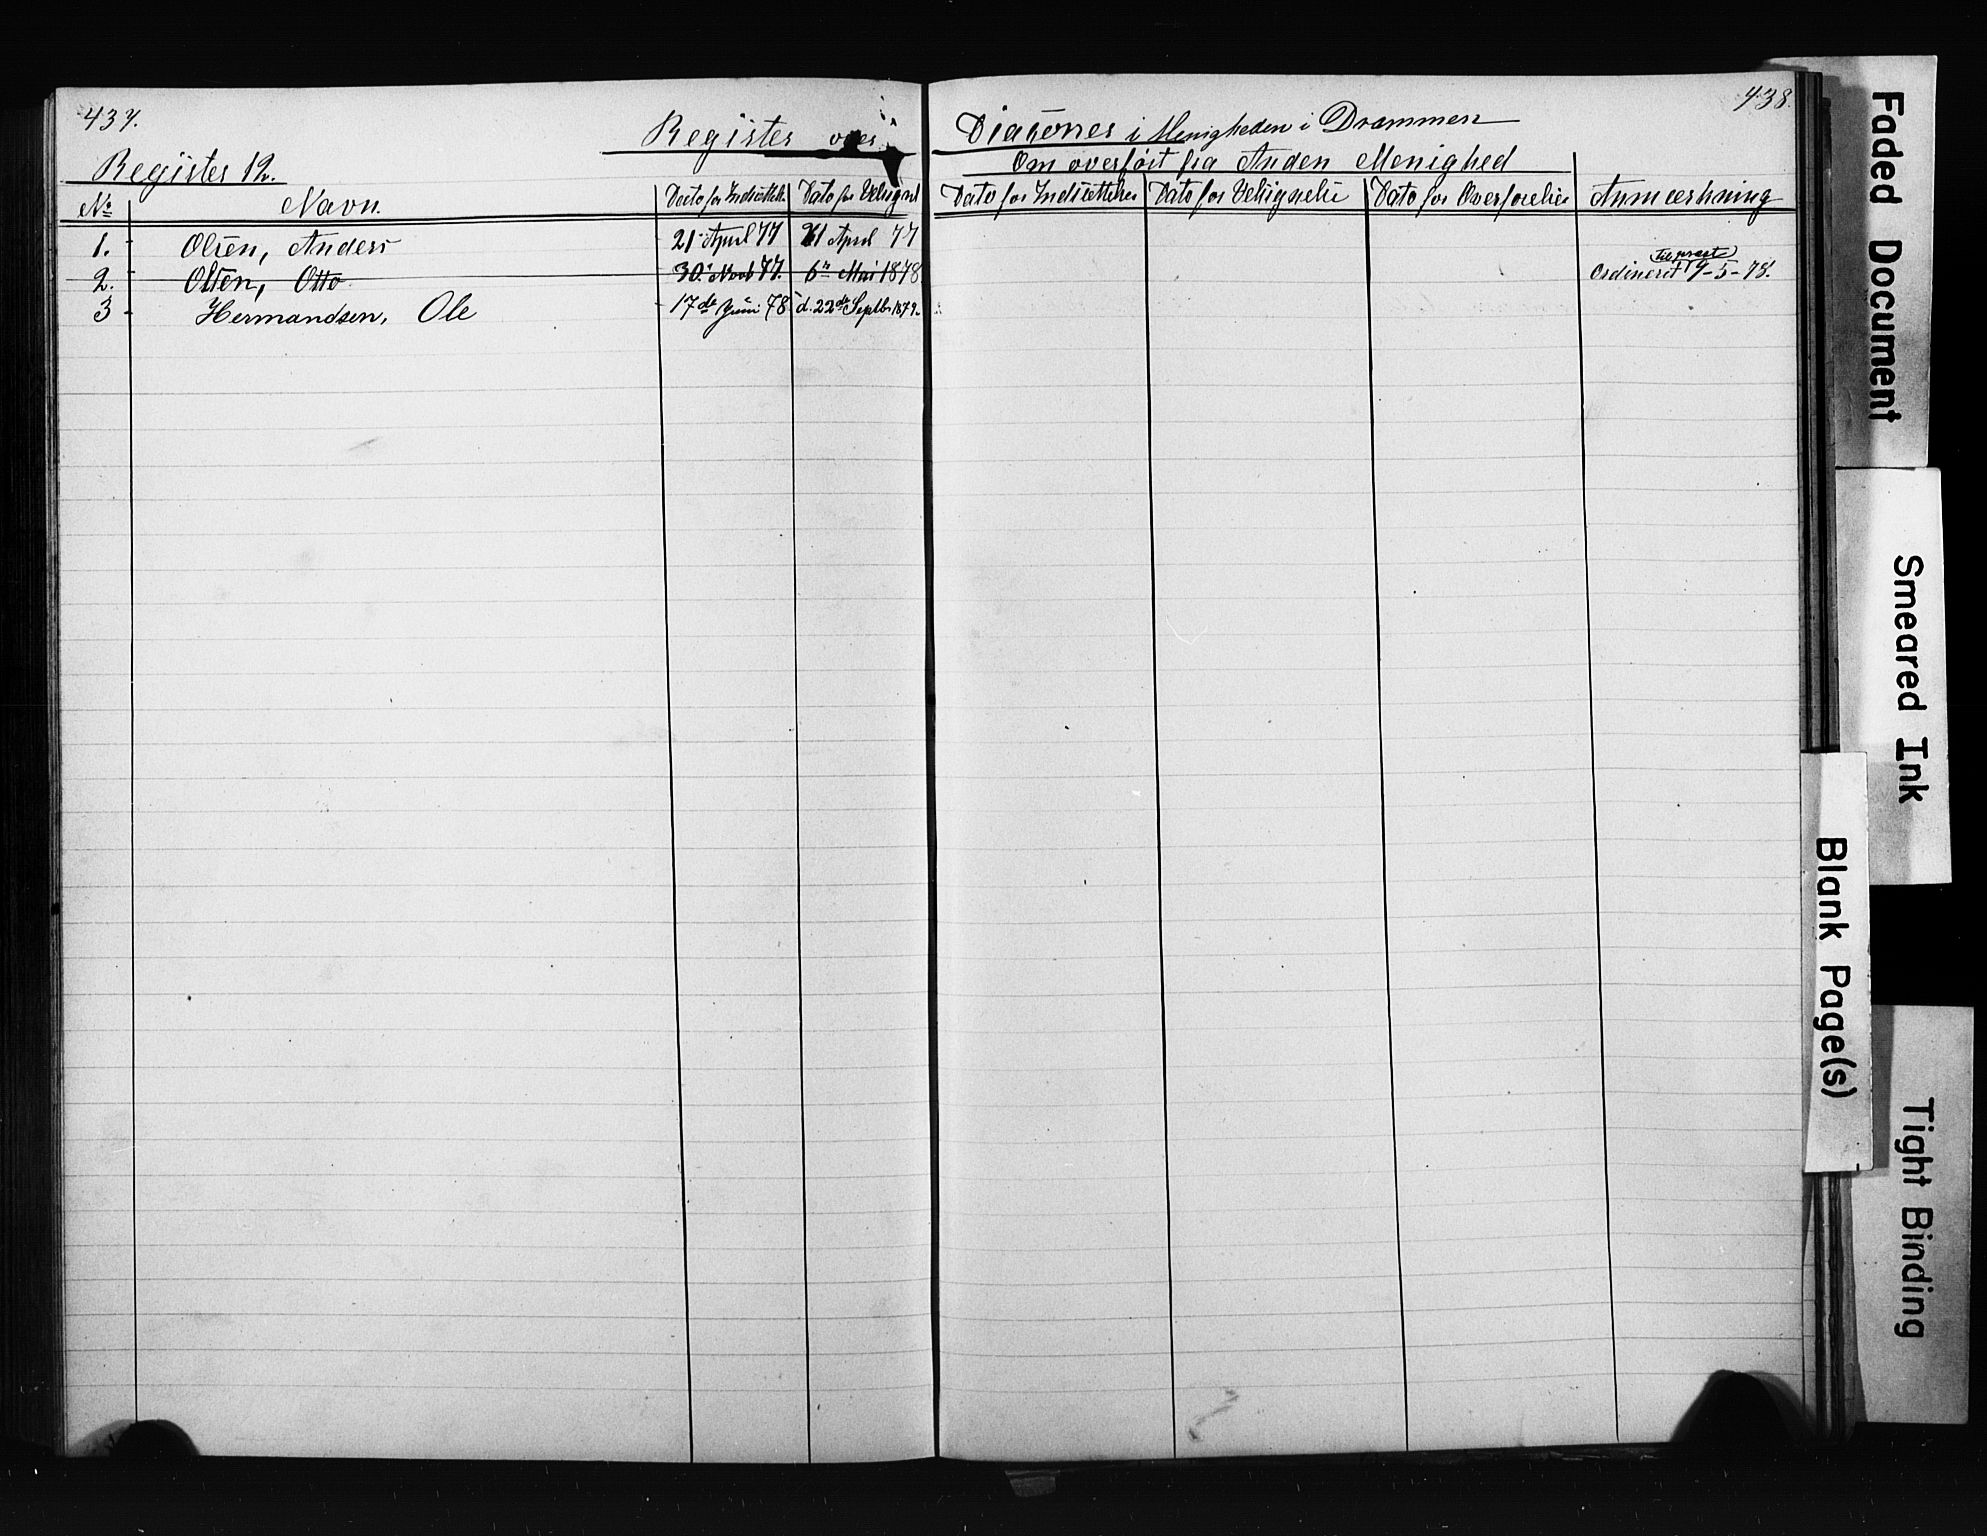 437.
438.
Register over Diaconer i Menigheden i Drammen
Register 12.
Om overført fra Anden Menighed
No Navn. Dato for Indsættels. Dato for Velsignel Dato for Indsættelse Dato for Velsignelse Dato for Overførelse Anmærkning
1. Olsen, Anders 21 April 77 21 April 77
2. Olsen, Otto 30 Novb 77. 6te Mai 1878 Ordineret til præst 19-5-78.
3 Hermandsen, Ole 17de Juni 78 d. 22de Septbr 1879.
Faded Document
Smeared Ink
Blank Page(s)
Tight Binding